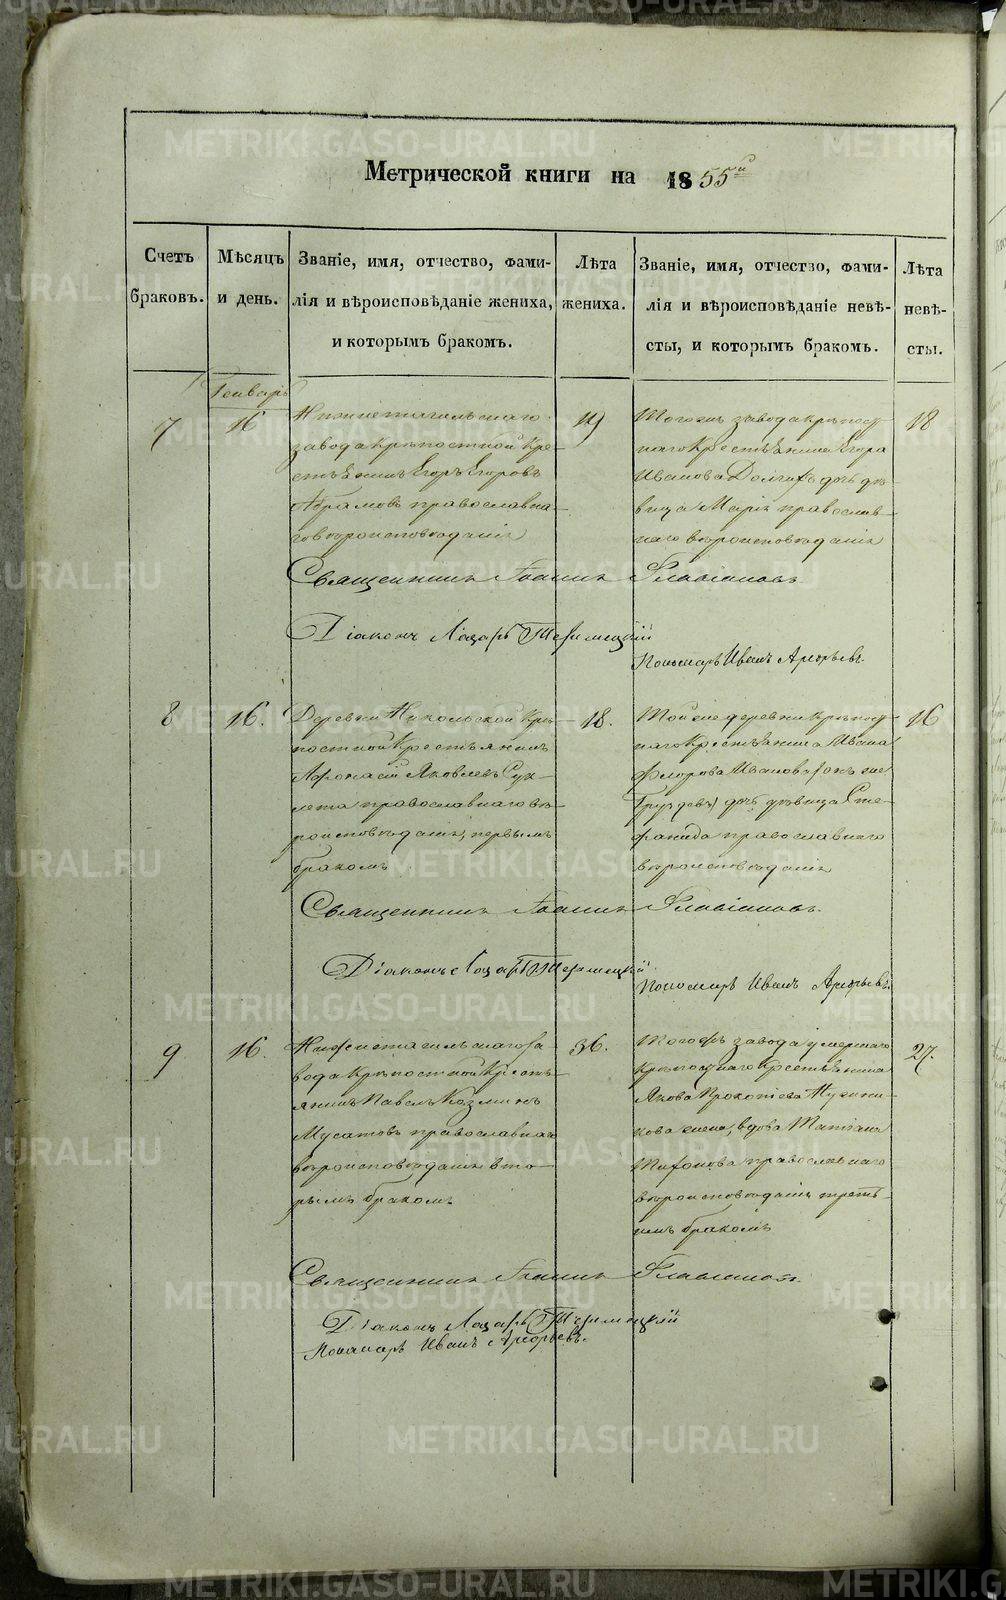 Метрической книги на 1855й
Счетъ браковъ.
Мѣсяцъ и день.
Званіе, имя, отчество, фами-
лія и вѣроисповѣданіе жениха,
и которымъ бракомъ.
Лѣта жениха.
Званіе, имя, отчество, фами-
лія и вѣроисповѣданіе невѣ-
сты, и которымъ бракомъ.
Лѣта невѣ-
сты.
Генварь
7
16
Нижнетагильскаго
завода крѣпостной Кре-
стьянинъ Егоръ Егоровъ
Абрамовъ православна-
го вѣроисповѣданія
19
Тогоже завода крѣпост-
наго Крестьянина Егора
Иванова дочь дѣ-
вица Марія православ-
наго вѣроисповѣданія
18
Священникъ Іоаннъ Флавіановъ
Діаконъ Лазарь
Пономарь Иванъ
8
16.
Деревни Никольской Крѣ-
постной Крестьянинъ
Афонасій Яковлевъ
православнаго вѣ-
роисповѣданія, первымъ
бракомъ
18.
Тойже деревни Крѣпост-
наго Крестьянина Ивана
Флорова Иванова (онъ же
Груздевъ) дочь дѣвица Сте-
фанида православнаго
вѣроисповѣданія
16
Священникъ Іоаннъ Флавіановъ.
Діаконъ Лазарь
Пономарь Иванъ
9
16.
Нижнетагильскаго за-
вода Крѣпостной Кресть-
янинъ Павелъ Козминъ
Мусатовъ православнаго
вѣроисповѣданія вто-
рымъ бракомъ.
36.
Тогожъ завода умершаго
Крѣпостнаго Крестьянина
Якова Прокопіева
жена, вдова Татіана
православнаго
вѣроисповѣданія треть-
имъ бракомъ
27.
Священникъ Іоаннъ Флавіановъ.
Діаконъ Лазарь
Пономарь Иванъ
METRIKI.GASO-URAL.RU